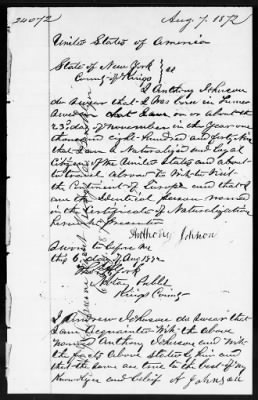 24072
Aug 7, 1872
United States of America
State of New York
County of Kings } ss
I Anthony Johnson
do swear that I was born in
on or about the
23d day of November in the Year one
thousand eight Hundred and
that I am a Naturalized and Loyal
Citizen of the United States and about
to travel abroad to Wit to Visit
the Continent of Europe and that I
am the Identical person named
in the Certificate of Naturalization
herewith presented
Anthony Johnson
Sworn to before me
this 6th day of Aug 1872
Notary Public
Kings County
I Andrew Johnson do swear that
I am acquainted with the above
named Anthony Johnson and with
the facts above stated by him and
that the same are true to the best of my
Knowledge and belief A Johnson